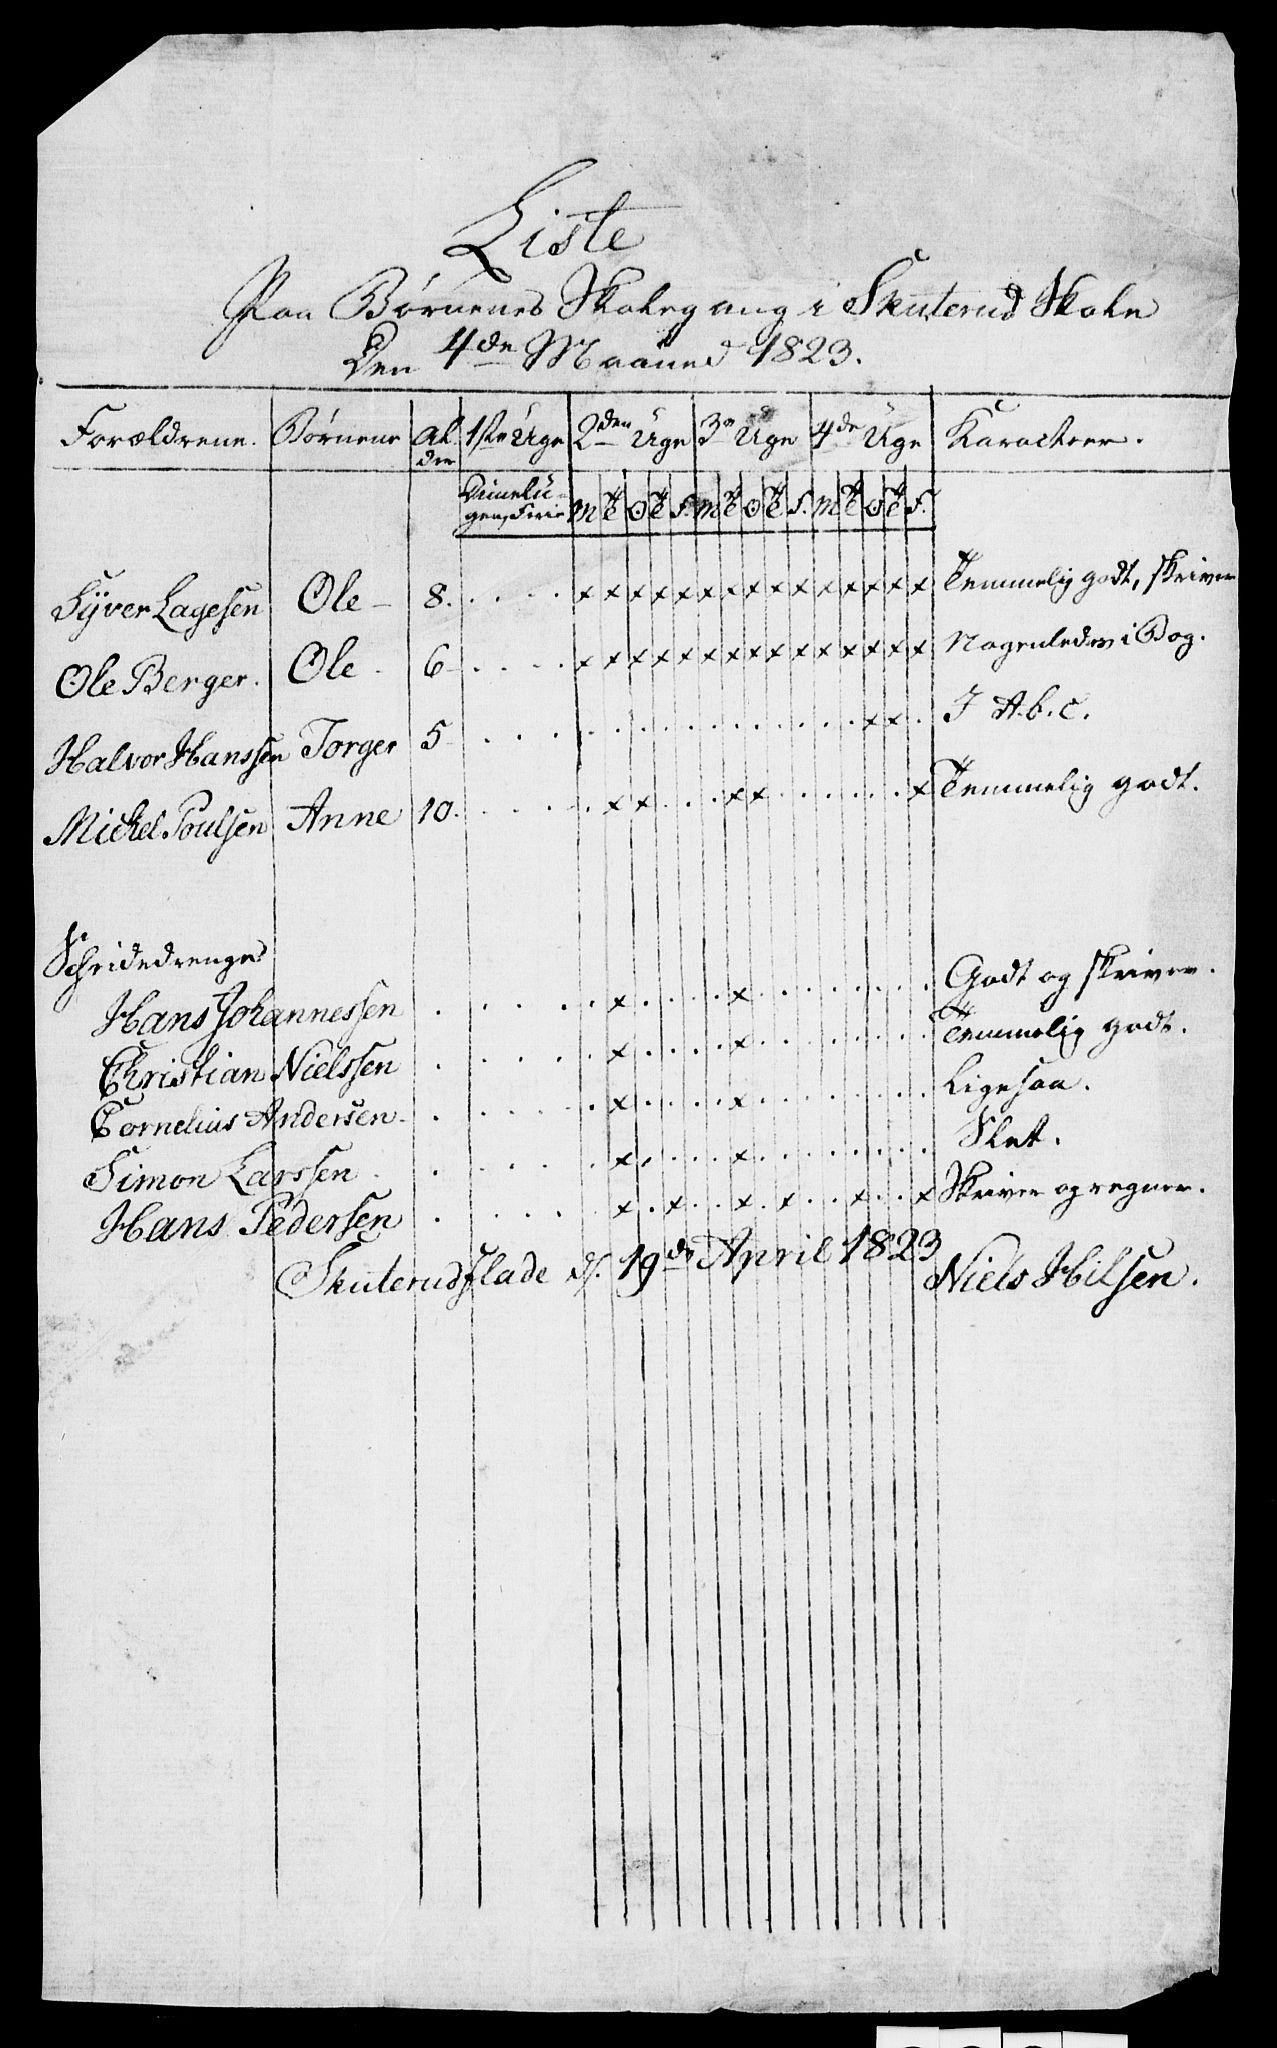 Liste
Paa Børnenes Skolegang i Skuterud Skole
Den 4de Maaned 1823.
Forældrene. Børnene Al 1ste Uge 2den Uge 3e Uge 4de Uge Karacteer.
der
Dimelü-
gen, Ferie M T O T F. M T O T F. M T O T F.
Syver Lagesen Ole – 8. . . . . x x x x x x x x x x x x x x x Temmelig godt, skriver
Ole Berger. Ole - 6 – . . . . x x x x x x x x x x x x x x x Nogenledes i Bog.
Halvor Hanssen Torger 5 . . . . . . . . . . . . . . . . x x . I A.b.c.
Mickel Poulsen Anne 10. . . . . . x x . . . x x . . . . . . x Temmelig godt.
Schridedrenge
Hans Johannessen . . . . . x . . . . x . . . . . . . . Godt og skriver.
Christian Nielssen . . . . . x . . . . x . . . . . . . . Temmelig godt.
Cornelius Andersen . . . . . . x . . . . x . . . . . . . . Ligesaa.
Simon Larssen . . . . . . x . . . . x . . . . . . . . Slet.
Hans Pedersen . . . . . x . x . . x . x . . x . . x Skriver og regner.
Skuterudflade d. 19de April 1823
Niels Hilsen.